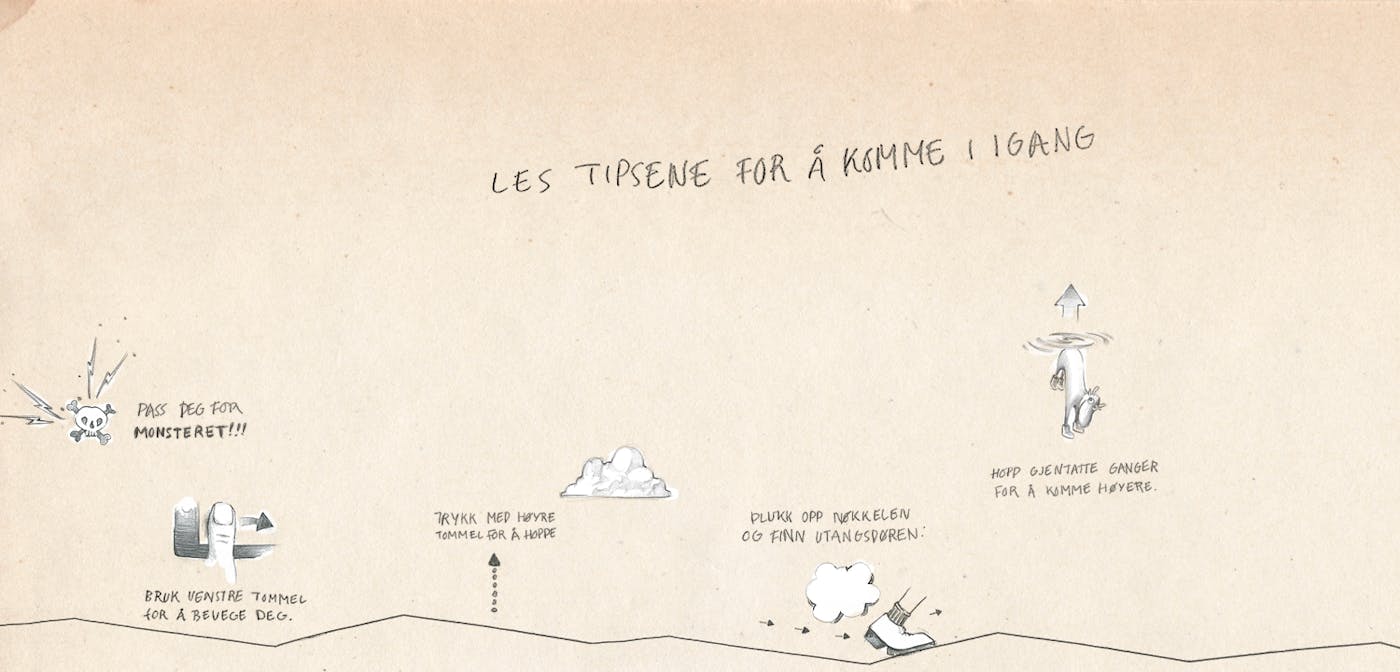 LES TIPSENE FOR Å KOMME I IGANG
PASS DEG FOR
MONSTERET!!!
BRUK VENSTRE TOMMEL
FOR Å BEVEGE DEG.
TRYKK MED HØYRE
TOMMEL FOR Å HOPPE
PLUKK OPP NØKKELEN
OG FINN UTANGSDØREN:
HOPP GJENTATTE GANGER
FOR Å KOMME HØYERE.